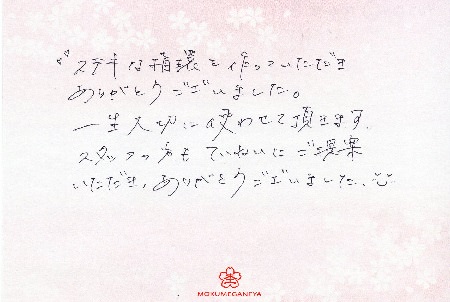 ステキな指環を作っていただき
ありがとうございました。
一生大切に使わせて頂きます。
スタッフの方も ていねいに ご提案
いただき、ありがとうございました。
MOKUMEGANEYA